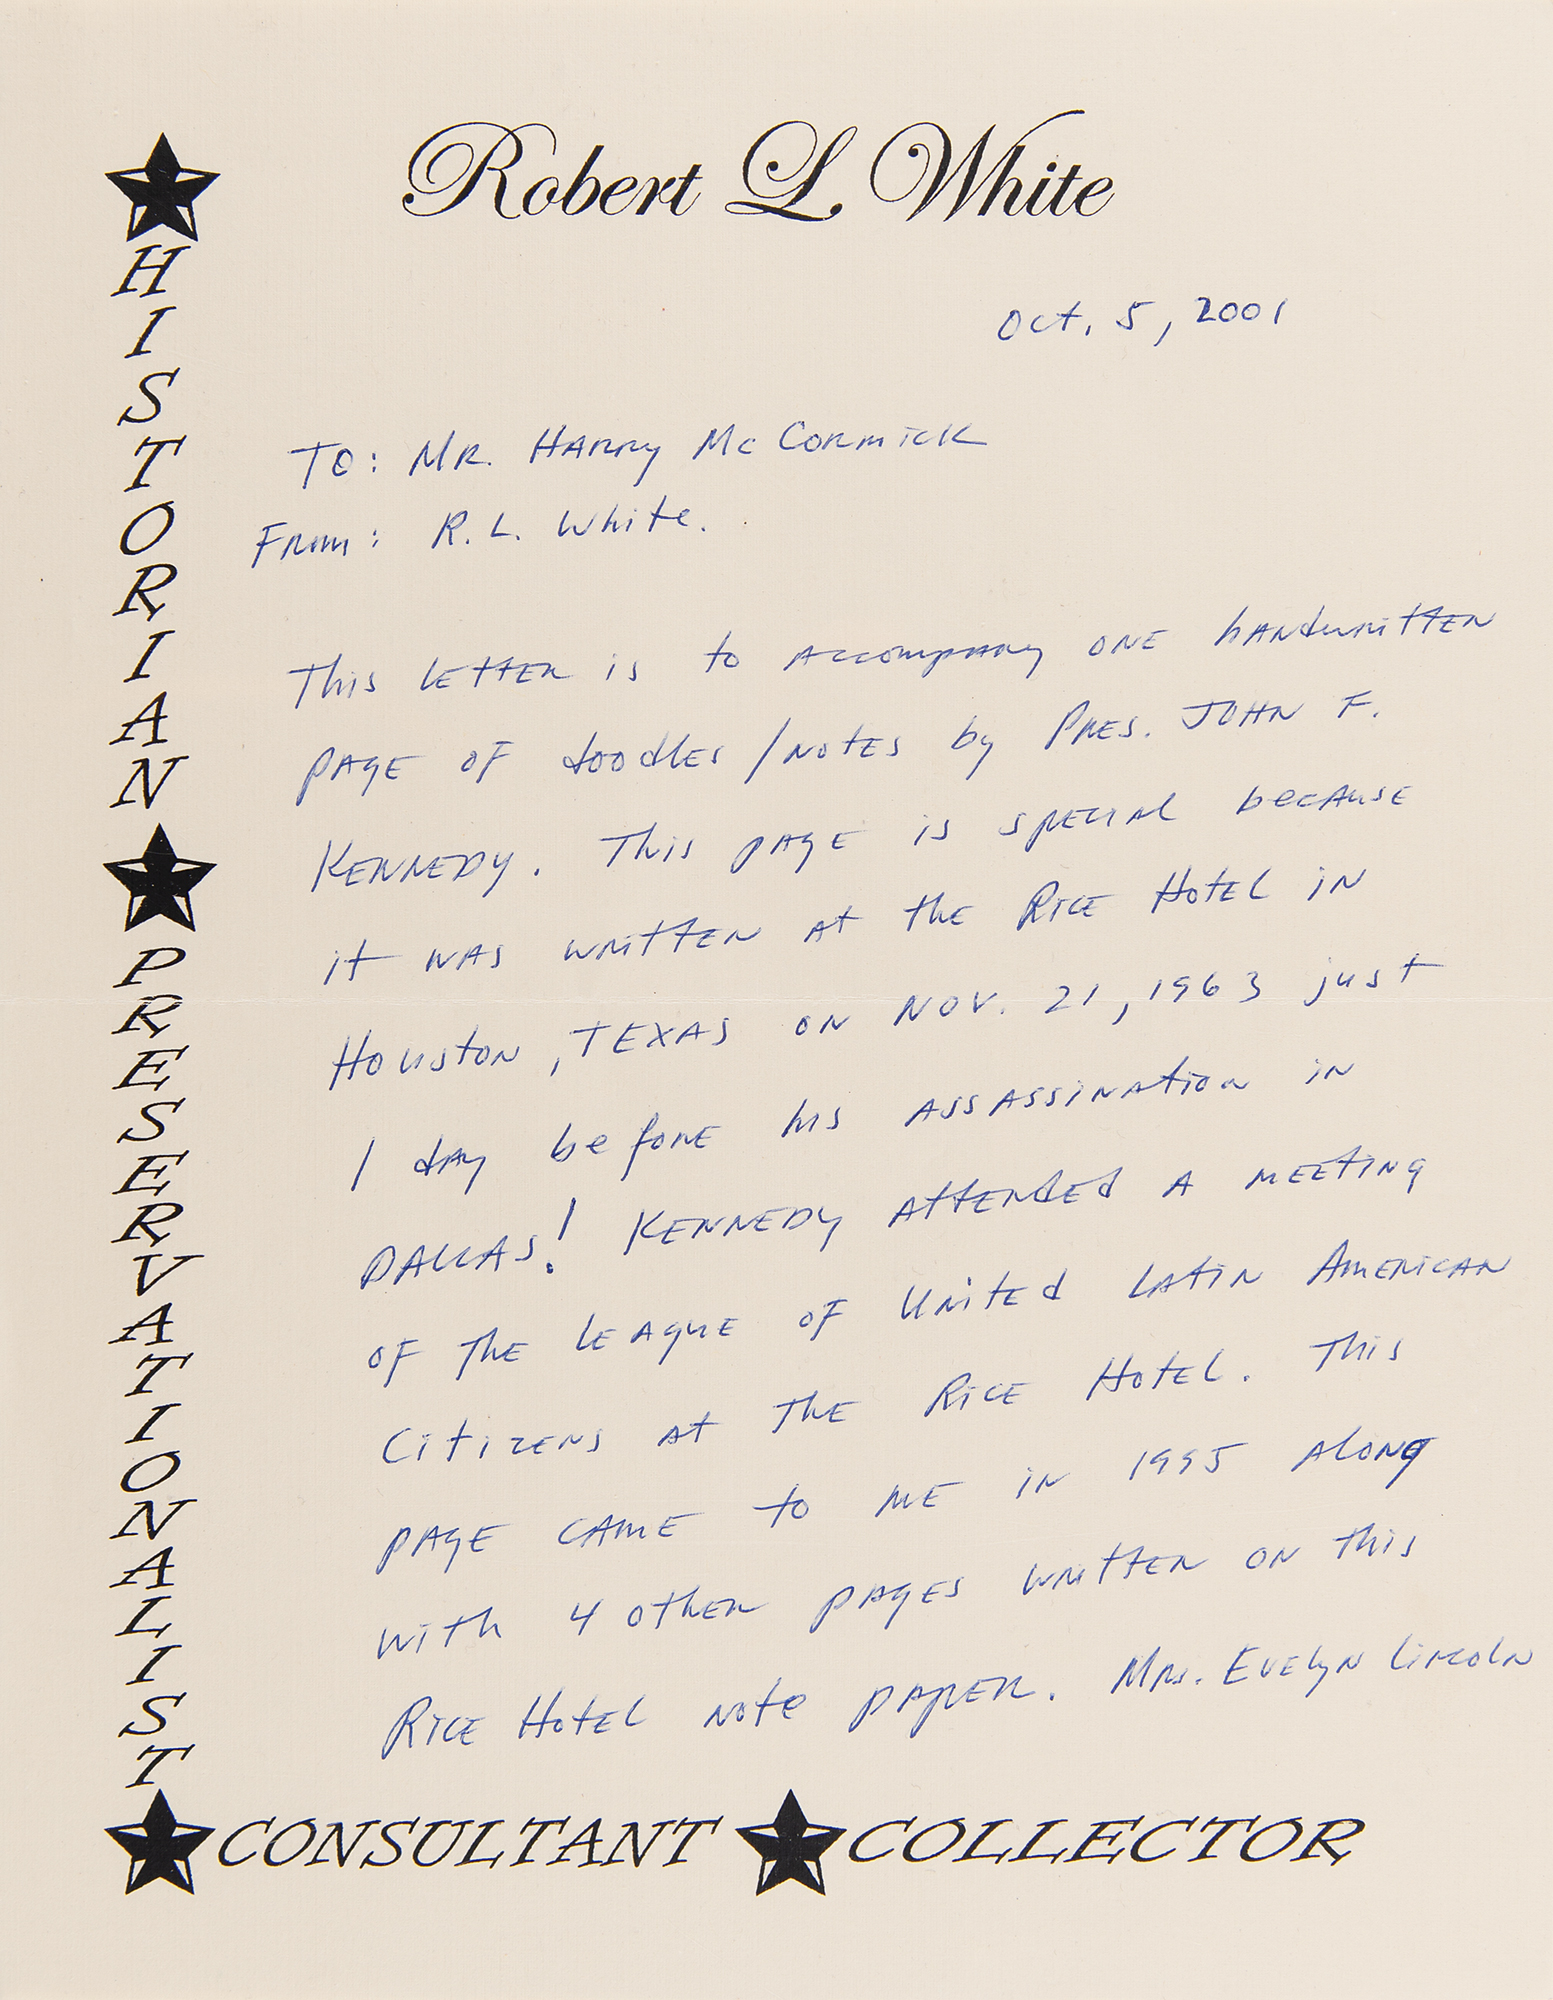 Robert L. White
HISTORIAN
PRESERVATIONALIST
CONSULTANT COLLECTOR
Oct. 5, 2001
To: Mr. Harry McCormick
From: R. L. White.
This letter is to accompany one handwritten
page of doodles/notes by Pres. John F.
Kennedy. This page is special because
it was written at the Rice Hotel in
Houston, Texas on Nov. 21, 1963 just
1 day before his assassination in
Dallas! Kennedy attended a meeting
of the League of United Latin American
Citizens at the Rice Hotel. This
page came to me in 1995 along
with 4 other pages written on this
Rice Hotel note paper. Mrs. Evelyn Lincoln